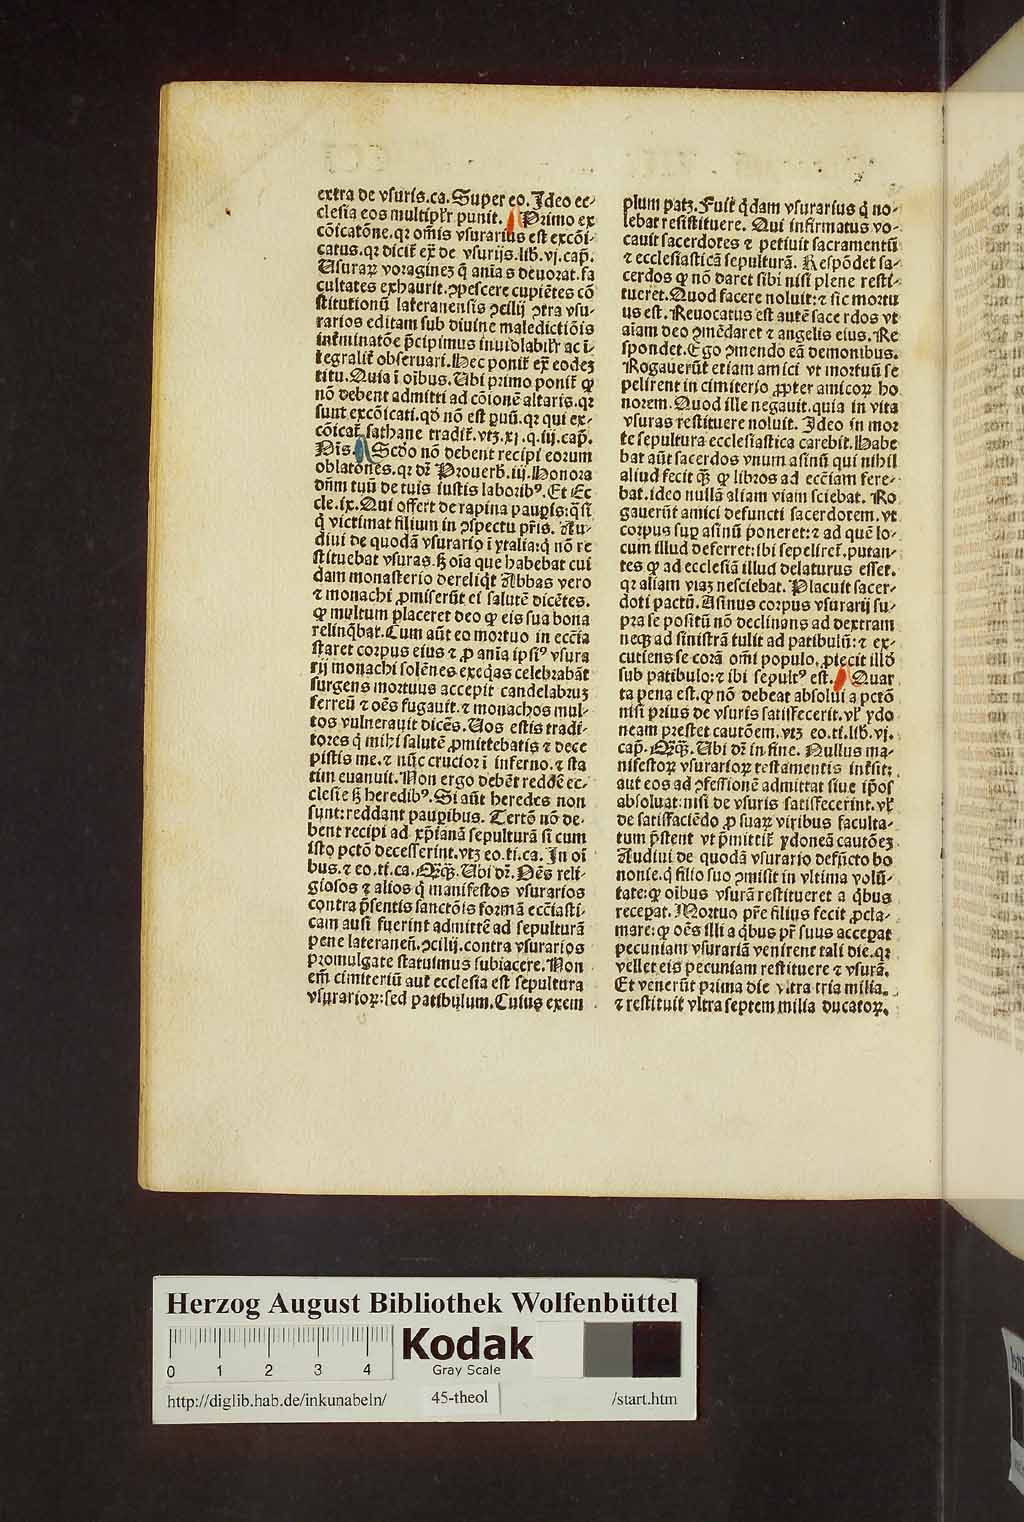 extra de vsuris.ca. Super eo. Ideo ec-
clesia eos multiplr̃ punit. Primo ex
cõicatõne. qꝛ om̃is vsurarius est excõi-
catus. qꝛ dicit̃ ex̃ de vsurijs. lib̃. vj. cap̃.
Usuraꝝ voragineꝫ q̃ anĩas deuorat. fa
cultates exhaurit. ꝯpescere cupiẽtes cõ
stitutionũ lateranensis ꝯcilij ꝯtra vsu-
rarios editam sub diuine maledictiõis
int̃minatõe p̃cipimus inuiolabilr̃ ac ĩ-
tegralit̃ obseruari. Hec ponit̃ ex̃ eodeꝫ
titu. Quia ĩ oĩbus. Ubi primo ponit̃ ꝙ
nõ debent admitti ad cõionẽ altaris. qꝛ
sunt excõicati. qđ nõ est ꝑuũ. qꝛ qui ex-
cõicat̃ sathane tradit̃. vtꝫ. xj. q. iij. cap̃.
Nĩs. Scđo nõ debent recipi eorum
oblatõnes. qꝛ dr̃ Prouerb̃. iij. Honora
dñm tuũ de tuis iustis laborib⁹. Et Ec
cle. ix. Qui offert de rapina pauꝑis: q̃si
q̃ victimat filium in ꝯspectu pr̃is. Au-
diui de quodã vsurario ĩ ytalia: q̃ nõ re
stituebat vsuras. sꝫ oĩa que habebat cui
dam monasterio dereliq̃t Abbas vero
⁊ monachi ꝓmiserũt ei salutẽ dicẽtes.
ꝙ multum placeret deo ꝙ eis sua bona
relinq̃bat. Cum aũt eo mortuo in ecc̃ia
staret corpus eius ⁊ ꝓ anĩa ipsi⁹ vsura
rij monachi solẽnes exeq̃as celebrabãt
surgens mortuus accepit candelabruꝫ
ferreũ ⁊ oẽs fugauit. ⁊ monachos mul-
tos vulnerauit dicẽs. Uos estis tradi-
tores q̃ mihi salutẽ ꝓmittebatis ⁊ dece
pistis me. ⁊ nũc crucior ĩ inferno. ⁊ sta
tim euanuit. Non ergo debẽt reddẽ ec-
clesie sꝫ heredib⁹. Si aũt heredes non
sunt: reddant pauꝑibus. Tertõ nõ de-
bent recipi ad xp̃ianã sepulturã si cum
isto pctõ decesserint. vtꝫ eo. ti. ca. In oĩ
bus. ⁊ eo. ti. ca. Qꝛqꝫ. Ubi dr̃. Oẽs reli-
giosos ⁊ alios q̃ manifestos vsurarios
contra p̃sentis sanctõis formã ecc̃iasti-
cam ausi fuerint admittẽ ad sepulturã
pene lateraneñ. ꝯcilij. contra vsurarios
promulgate statuimus subiacere. Non
em̃ cimiteriũ aut ecclesia est sepultura
vsurarioꝝ: sed patibulum. Cuius exem
plum patꝫ. Fuit q̃dam vsurarius q̃ no-
lebat restituere. Qui infirmatus vo-
cauit sacerdotes ⁊ petiuit sacramentũ
⁊ ecclesiasticã sepulturã. Respõdet sa-
cerdos ꝙ nõ daret sibi nisi plene resti-
tueret. Quod facere noluit: ⁊ sic mortu
us est. Reuocatus est autẽ sacerdos vt
aĩam deo ꝯmẽdaret ⁊ angelis eius. Re
spondet. Ego ꝯmendo eã demonibus.
Rogauerũt etiam amici vt mortuũ se
pelirent in cimiterio ꝓpter amicoꝝ ho
norem. Quod ille negauit. quia in vita
vsuras restituere noluit. Ideo in mor
te sepultura ecclesiastica carebit. Habe
bat aũt sacerdos vnum asinũ qui nihil
aliud fecit q̃ꝫ ꝙ libros ad ecc̃iam fere-
bat. ideo nullã aliam viam sciebat. Ro
gauerũt amici defuncti sacerdotem. vt
corpus suꝑ asinũ poneret: ⁊ ad quẽ lo-
cum illud deferret: ibi sepeliret̃. putan-
tes ꝙ ad ecclesiã illud delaturus esset.
qꝛ aliam viaꝫ nesciebat. Placuit sacer-
doti pactũ. Asinus corpus vsurarij su-
pra se positũ nõ declinans ad dextram
neqꝫ ad sinistrã tulit ad patibulũ: ⁊ ex-
cutiens se corã om̃i populo, ꝓiecit illđ
sub patibulo: ⁊ ibi sepult⁹ est. Quar
ta pena est. ꝙ nõ debeat absolui a pctõ
nisi prius de vsuris satisfecerit. vl̃ ydo
neam prestet cautõem. vtꝫ eo. ti. lib̃. vj.
cap̃. Qꝛqꝫ. Ubi dr̃ in fine. Nullus ma-
nifestoꝝ vsurarioꝝ testamentis inte̊sit:
aut eos ad ꝯfessionẽ admittat siue ip̃os
absoluat: nisi de vsuris satisfecerint. vl̃
de satisfaciẽdo ꝓ suaꝝ viribus faculta-
tum p̃stent vt p̃mittit̃ ydoneã cautõeꝫ
Audiui de quodã vsurario defũcto bo
nonie. q̃ filio suo ꝯmisit in vltima volũ-
tate: ꝙ oĩbus vsurã restitueret a q̃bus
receperat. Mortuo pr̃e filius fecit ꝓcla-
mare: ꝙ oẽs illi a q̃bus pr̃ suus acceperat
pecuniam vsurariã venirent tali die. qꝛ
vellet eis pecuniam restituere ⁊ vsurã.
Et venerũt prima die vltra tria milia.
⁊ restituit vltra septem milia ducatoꝝ.
Herzog August Bibliothek Wolfenbüttel
0 1 2 3 4
Kodak
Gray Scale
http://diglib.hab.de/inkunabeln/ 45-theol /start.htm